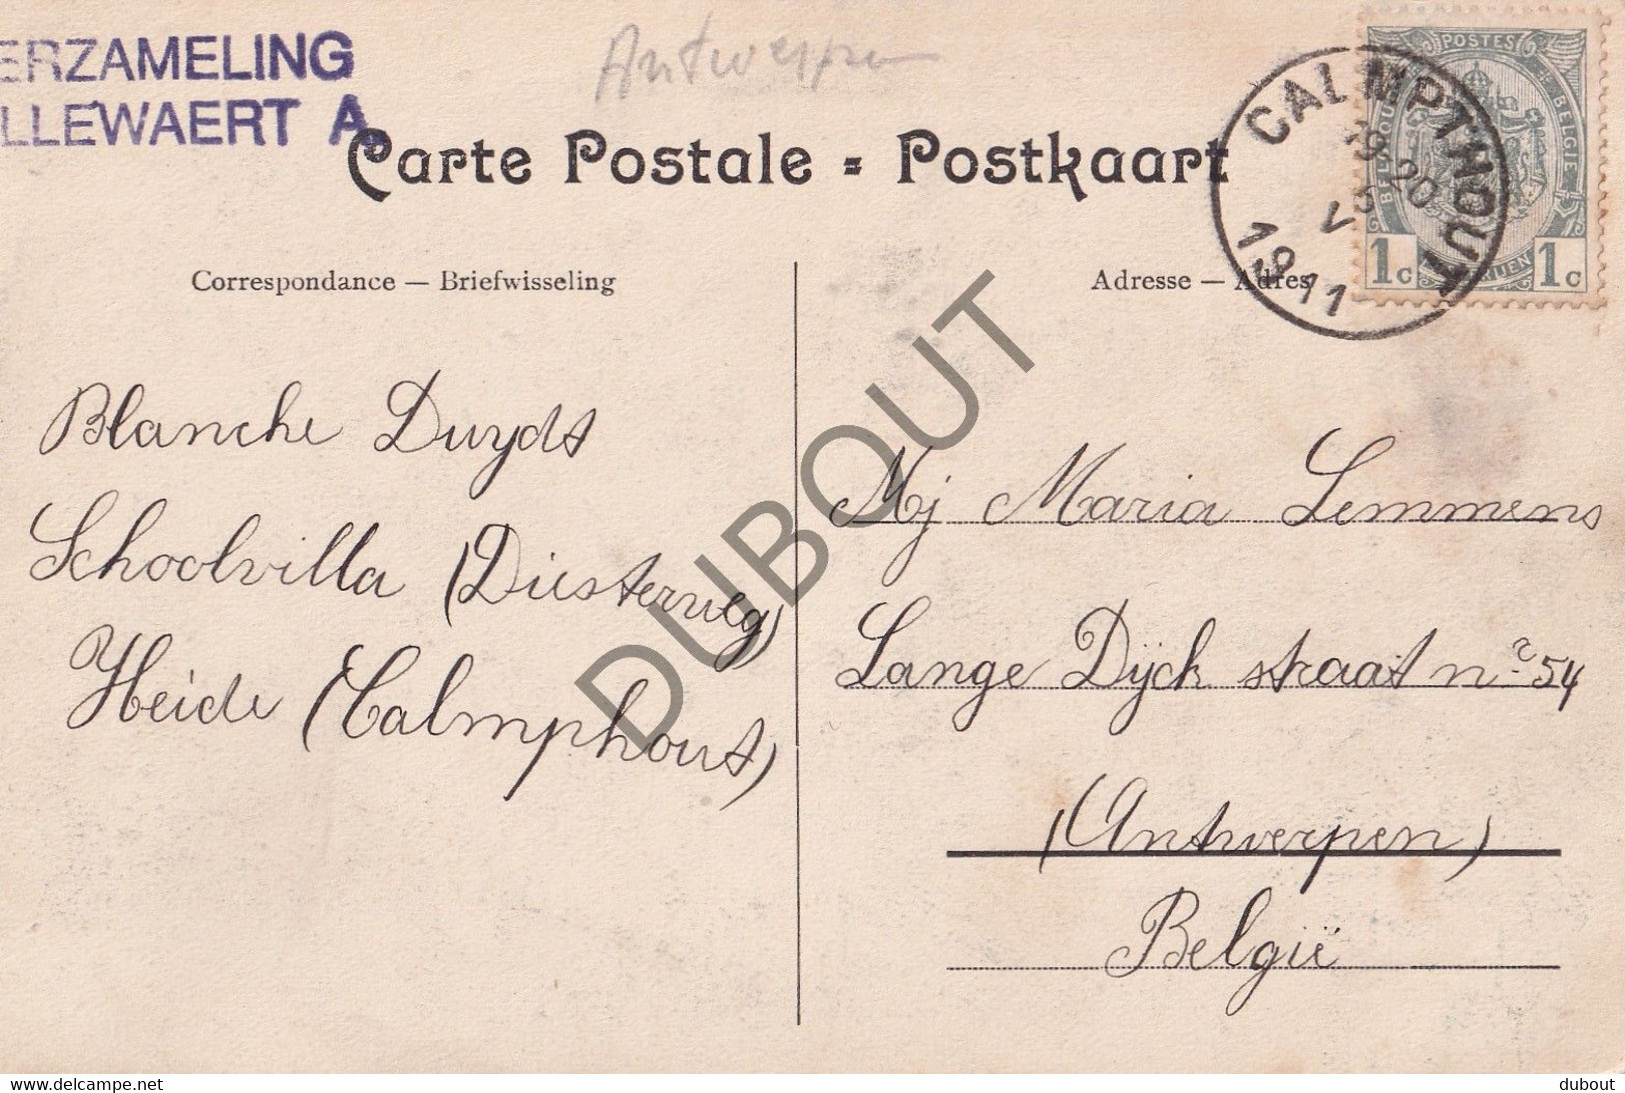 ERZAMELING
LLEWAERT A
Antwerpen
Carte Postale = Postkaart
CALMPTHOUT
19-20
5 V
1911
POSTES
BELGIQUE
BELGIE
1c 1c
Correspondance — Briefwisseling
Adresse — Adres
Blanche Duydts
Schoolvilla (Diesterweg)
Heide (Calmphout)
Mj Maria Lemmens
Lange Dijck straat nº 54
(Antwerpen)
België
DUBOUT
www.delcampe.net
dubout